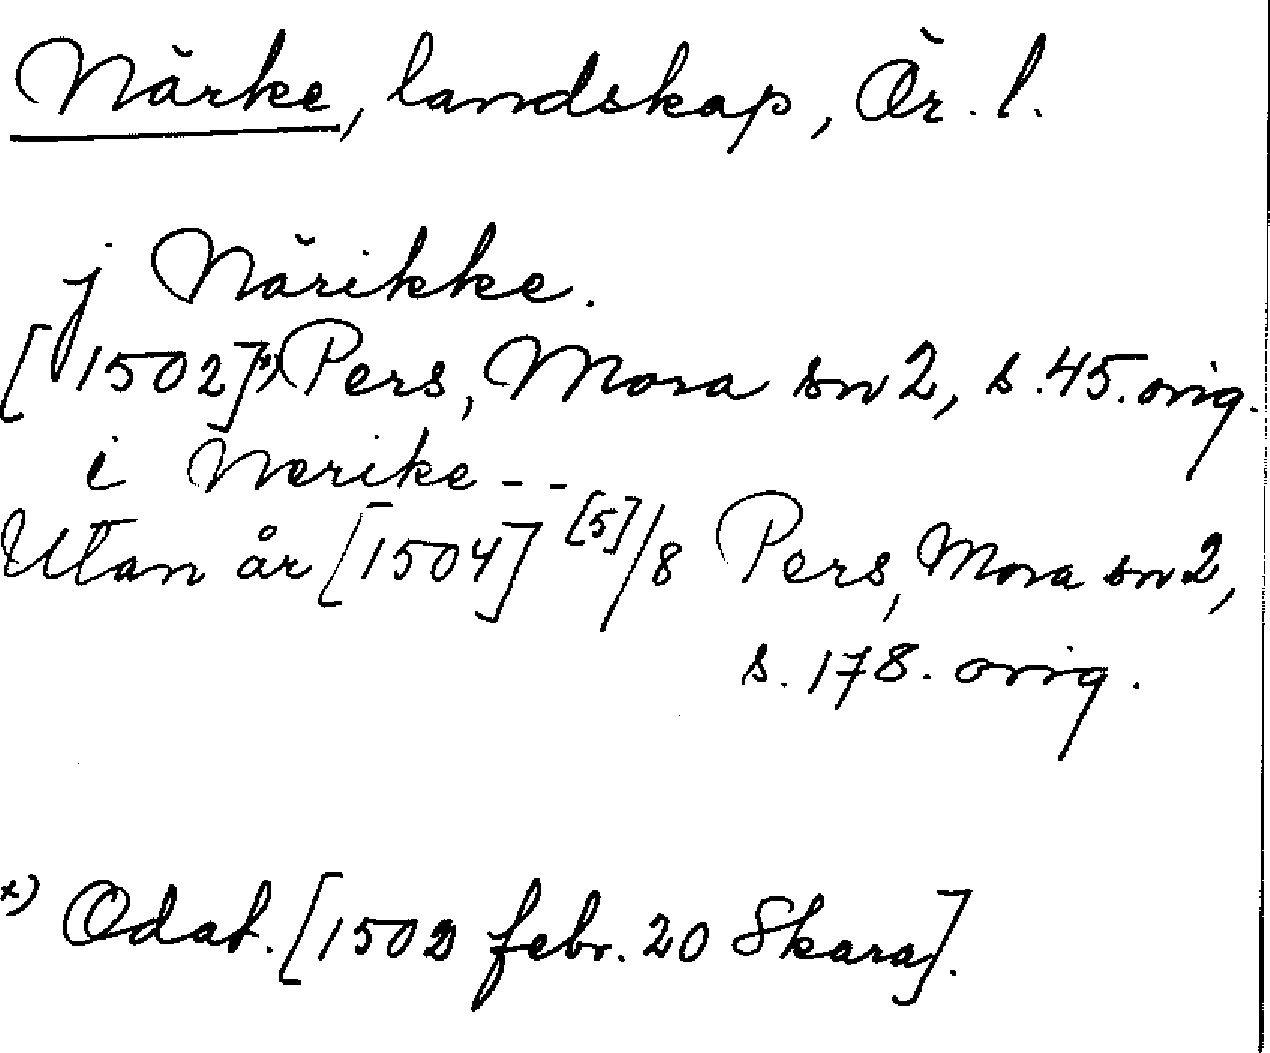 Närke, landskap, Ör. l.
j Närikke.
[1502]*) Pers, Mora sn 2, s. 45. orig.
i Nerike - -
Utan år [1504] [5]/8 Pers, Mora sn 2,
s. 178. orig.
*) Odat. [1502 febr. 20 Skara].